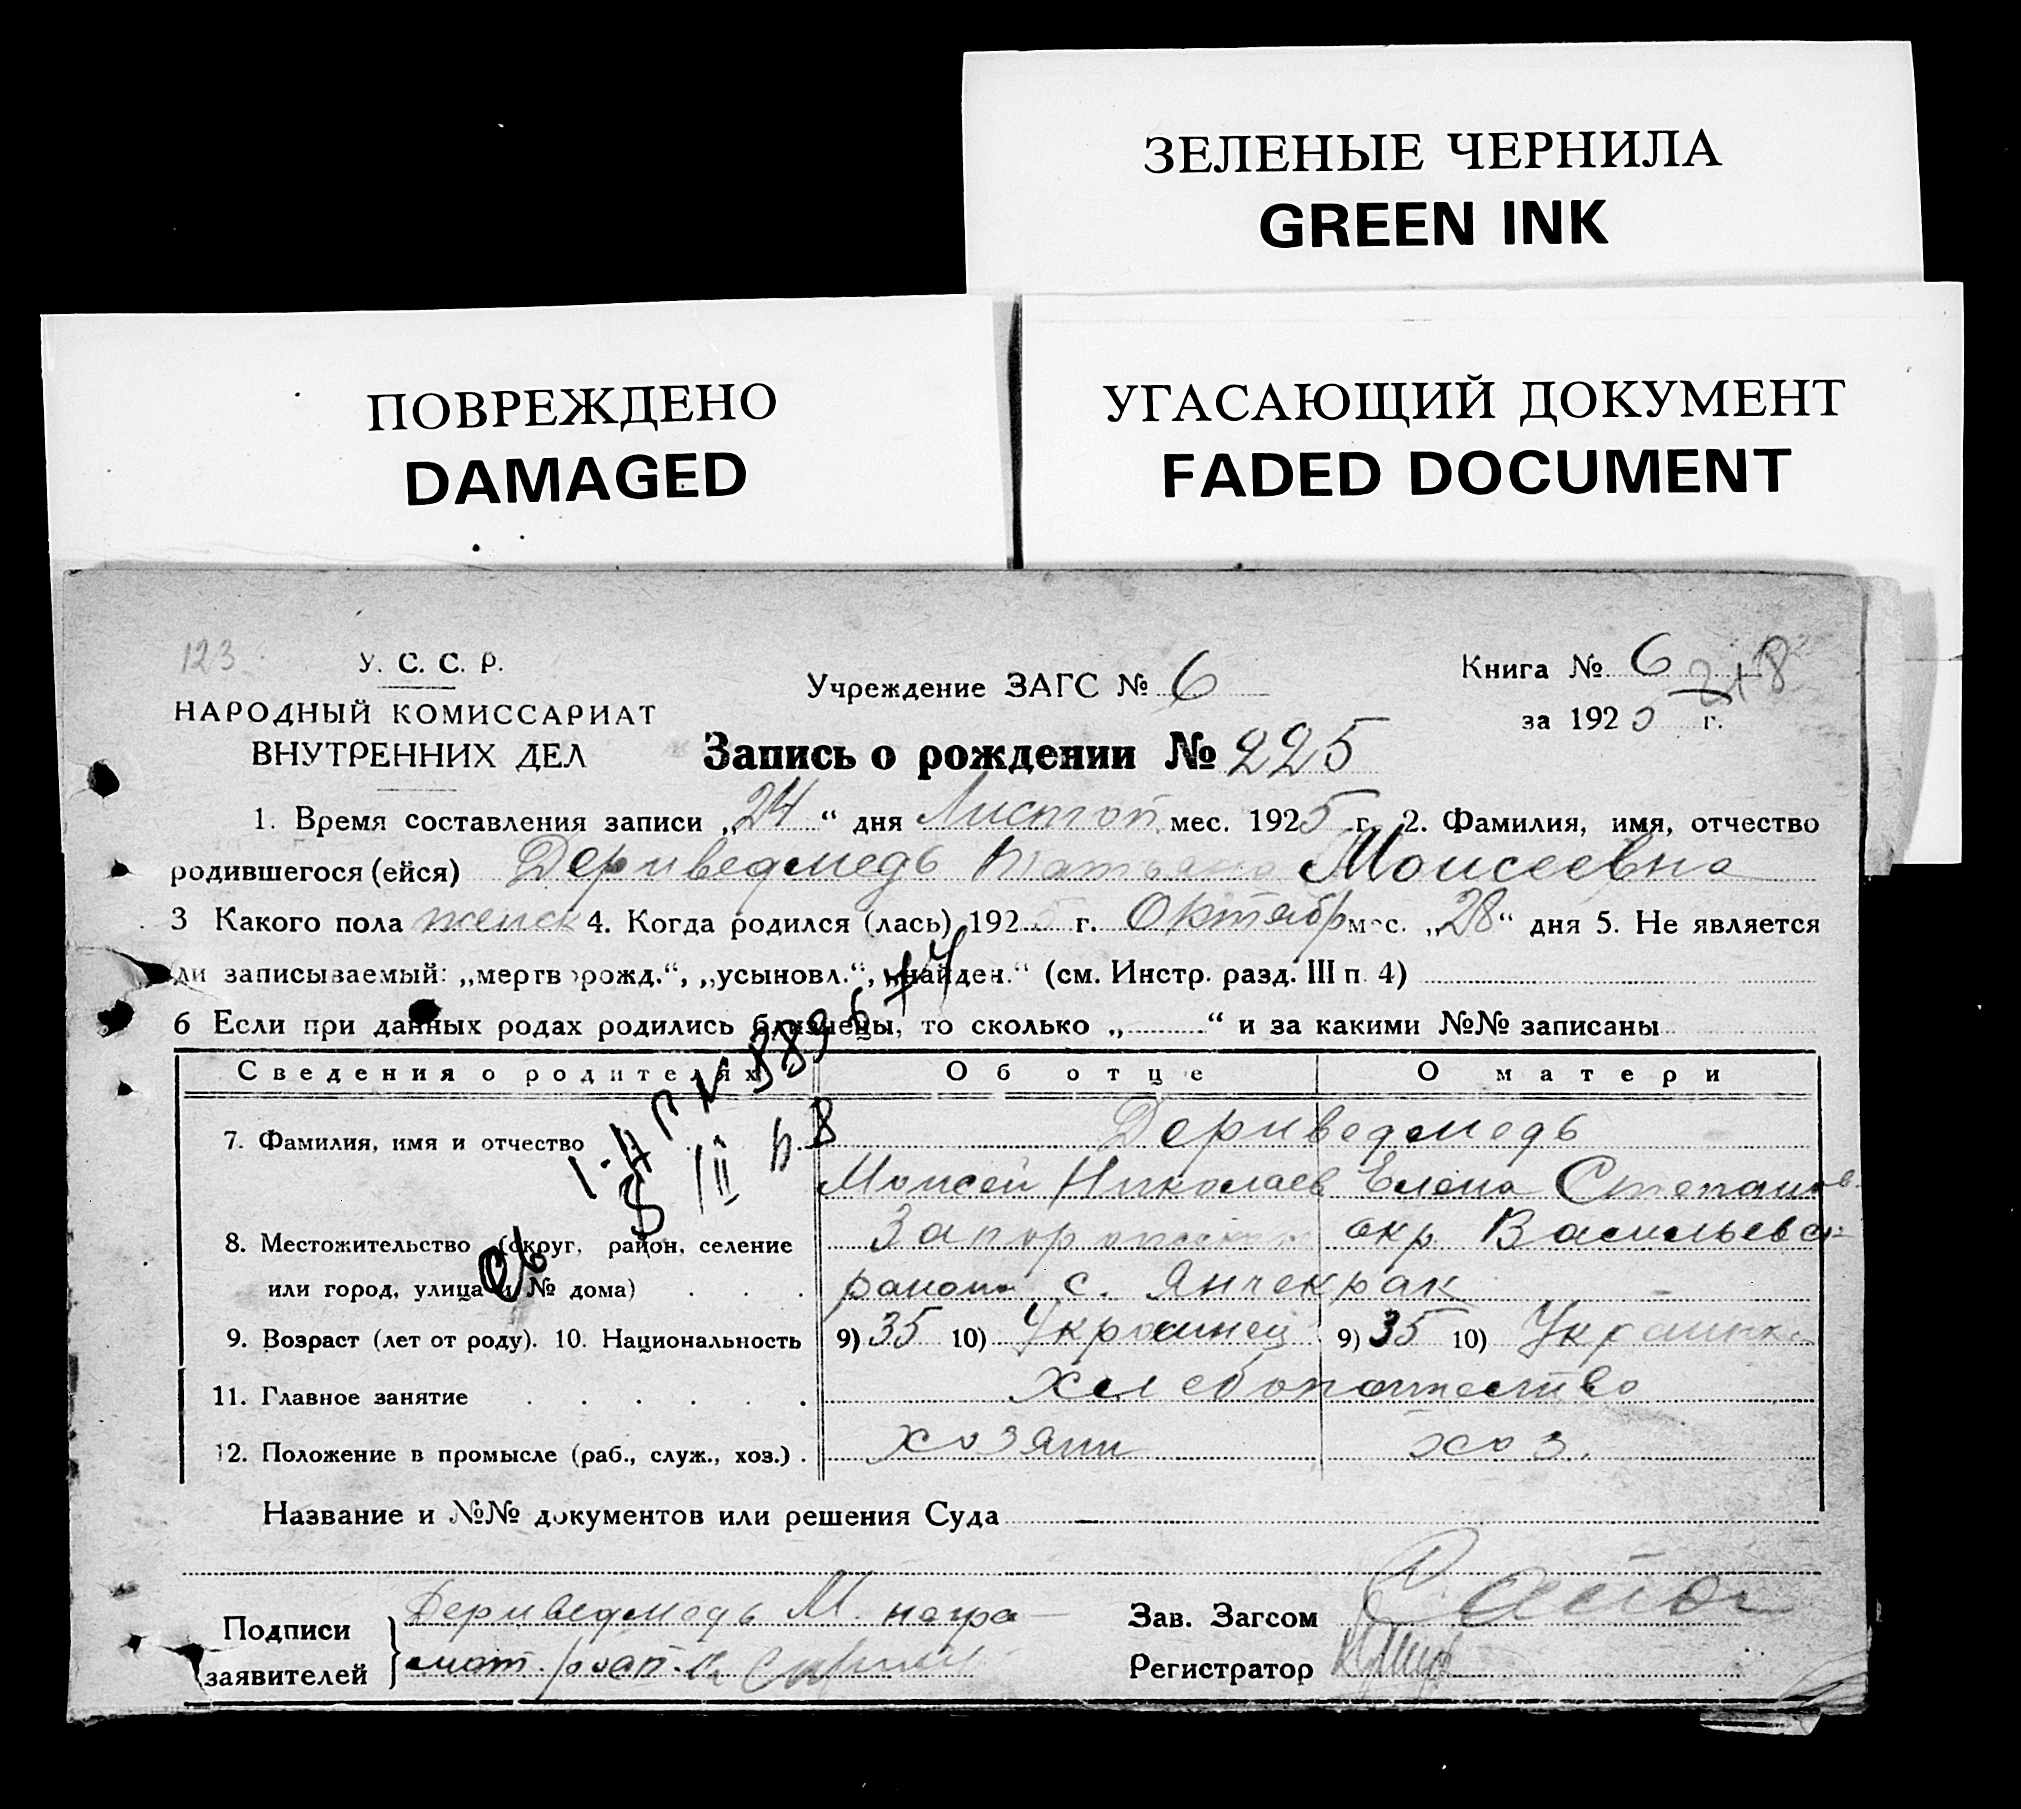 ЗЕЛЕНЫЕ ЧЕРНИЛА
GREEN INK
ПОВРЕЖДЕНО
DAMAGED
УГАСАЮЩИЙ ДОКУМЕНТ
FADED DOCUMENT
123
У. С. С. Р.
НАРОДНЫЙ КОМИССАРИАТ
ВНУТРЕННИХ ДЕЛ
Учреждение ЗАГС № 6
Книга № 6
за 1925 г.
Запись о рождении № 225
1. Время составления записи „24“ дня Листоп. мес. 1925 г. 2. Фамилия, имя, отчество
родившегося (ейся) Дериведмедь Татьяна Моисеевна
3 Какого пола женск 4. Когда родился (лась) 1925 г. Октябр мес. „28“ дня 5. Не является
ли записываемый: „мертворожд.“, „усыновл.“, „найден.“ (см. Инстр. разд. III п. 4)
6 Если при данных родах родились близнецы, то сколько „ “ и за какими №№ записаны
Сведения о родителях Об отце О матери
7. Фамилия, имя и отчество Дериведмедь
Моисей Николаев Елена Степанов
8. Местожительство (округ, район, селение Запорожск окр Васильевск
или город, улица и № дома) района с. Янчекрак
9. Возраст (лет от роду). 10. Национальность 9) 35 10) Украинец 9) 35 10) Украинка
11. Главное занятие Хлебопашество
12. Положение в промысле (раб., служ., хоз.) хозяин хоз.
Название и №№ документов или решения Суда
Подписи
заявителей
Дериведмедь М. негра
мот.
Зав. Загсом
Регистратор